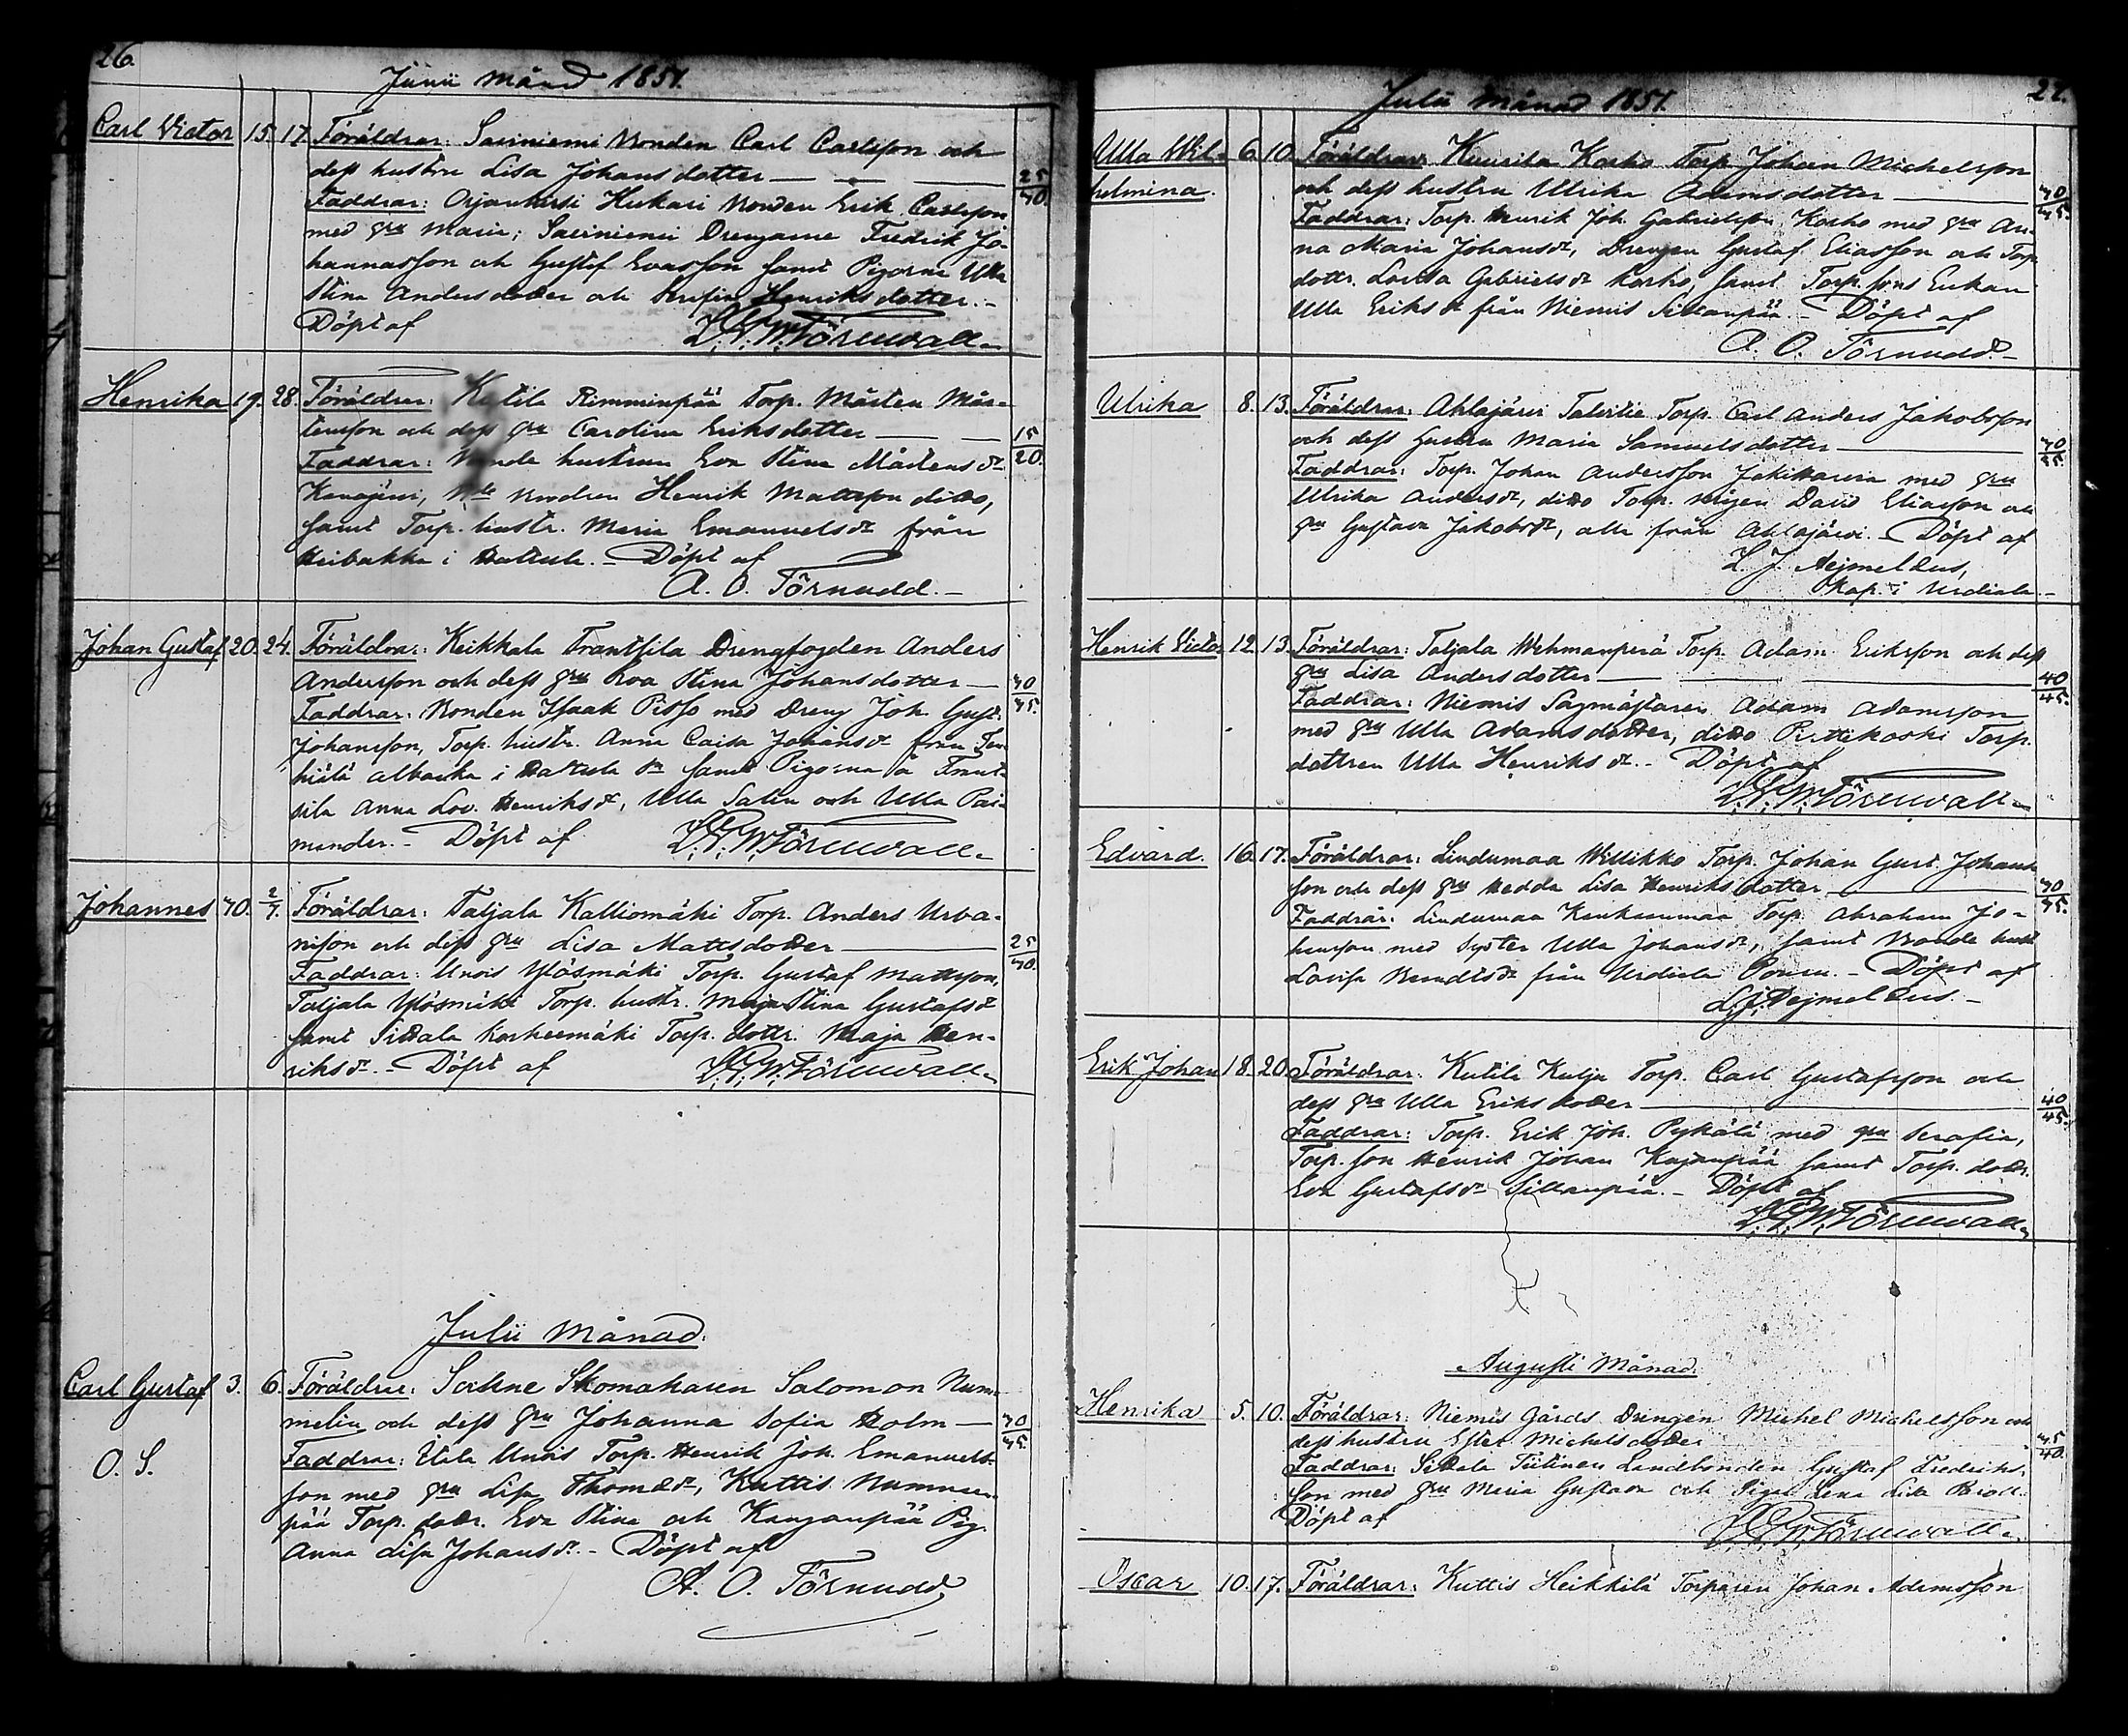 26.
Junii Månad 1851.
Carl Victor 15. 17. Föräldrar: Saviniemi Bonden Carl Carlsson och
dess hustru Lisa Johansdotter 25/30.
Faddrar: Bonden Erik Carlsson
med hu Maria; Saviniemi Drengarne Fredrik Jo-
hannesson och Gustaf Evasson samt Pigorna Ulla
Stina Andersdotter och Serafia Henriksdotter.-
Döpt af Törnwall.
Henrika 19. 28. Föräldrar: Kutila Rimminpää Torp. Mårten Mår-
tensson och dess hu Carolina Eriksdotter 15/20.
Faddrar: Bonde hustrun Eva Stina Mårtensdr
Bonden Henrik Mattsson ditto,
samt Torp. hustr. Maria Emanuelsdr från
i Hattula. - Döpt af
A. O. Törnudd.-
Johan Gustaf 20. 24. Föräldrar: Keikkala Franssila Drengfogden Anders
Andersson och dess hu Eva Stina Johansdotter 40/45.
Faddrar: Bonden Isaak Pisso med Dreng Joh. Gust.
Johansson, Torp. hustr. Anna Caisa Johansdr från
i Hattula sn samt Pigorna å Frant-
sila Anna Lov. Henriksdr, Ulla Salin och Ulla Pai-
mander. - Döpt af Törnwall.
Johannes 30. 2/7. Föräldrar: Taljala Kalliomäki Torp. Anders Urba-
nsson och dess hu Lisa Mattsdotter 25/30.
Faddrar: Unois Ylösmäki Torp. Gustaf Mattsson,
Taljala Ylösmäki Torp. hustr. Maja Stina Gustafsdr
samt Sittala Torp. dottr. Maja Hen-
riksdr. - Döpt af Törnwall.
Julii Månad.
Carl Gustaf 3. 6. Föräldrar: Sockne Skomakaren Salomon Num-
melin och dess hu Johanna Sofia Holm 40/45.
O. S.
Faddrar: Unois Torp. Henrik Joh. Emanuels-
son med hu Lisa Thomædr, Kuttis Nummen-
pää Torp. dottr. Eva Stina och Kanganpää Pig.
Anna Lisa Johansdr. - Döpt af
A. O. Törnudd
27.
Julii Månad 1851.
Ulla Wil- 6. 10. Föräldrar: Korho Torp. Johan Michelsson
helmina. och dess hustru Ulrika Adamsdotter 40/45.
Faddrar: Torp. Henrik Joh. Gabrielsson Korho med hu An-
na Maria Johansdr, Drengen Gustaf Eliasson och Torp.
dottr. Lovisa Gabrielsdr Korho, samt Torp. sons Enkan
Ulla Eriksdr från Niemis Sillanpää. - Döpt af
A. O. Törnudd
Ulrika 8. 13. Föräldrar: Ahlajärvi Talvitie Torp. Carl Anders Jakobsson
och dess hustru Maria Samuelsdotter
Faddrar: Torp. Johan Andersson med hu
Ulrika Andersdr, ditto Torp. mågen David Eliasson och
hu Gustava Jakobsdr, alla från Ahlajärvi. - Döpt af
L. J. Aejmelæus,
Kap. i Urdiala.-
Henrik Victor 12. 13. Föräldrar: Taljala Wehmanperä Torp. Adam Eriksson och dess
hu Lisa Andersdotter 40/45.
Faddrar: Niemis Sågmästaren Adam Adamsson
med hu Ulla Adamsdotter, ditto Pirttikoski Torp.
dottren Ulla Henriksdr. - Döpt af
Törnwall.
Edvard. 16. 17. Föräldrar: Lindumaa Wellikko Torp. Johan Gust. Johans-
son och dess hu Hedda Lisa Henriksdotter
Faddrar: Lindumaa Torp. Abraham Jo-
hansson med syster Ulla Johansdr, samt Bonde hust.
Lovisa från Urdiala. - Döpt af
L. J. Aejmelæus.-
Erik Johan 18. 20. Föräldrar: Kutila Kulju Torp. Carl Gustafsson och
dess hu Ulla Eriksdotter 40/45.
Faddrar: Torp. Erik Joh. Pykälä med hu Serafia,
Torp. son Henrik Johan samt Torp. dottr.
Eva Gustafsdr Sillanpää. - Döpt af
Törnwall.
Augusti Månad.
Henrika 5. 10. Föräldrar: Niemis Gårds Drengen Michel Michelsson och
dess hustru Ester Michelsdotter
Faddrar: Sittala Tiitinen Landbonden Gustaf Fredriks-
son med hu Maria Gustava och Pigan Lena Lisa
Döpt af Törnwall.
Oscar 10. 17. Föräldrar: Kuttis Heikkilä Torparen Johan Adamsson